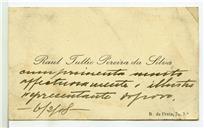 Raul Tulho Pereira da Silva
cumprimenta muito
affectuosamente o illustre
representante do povo.
6/2/08
R. da Prata, 7